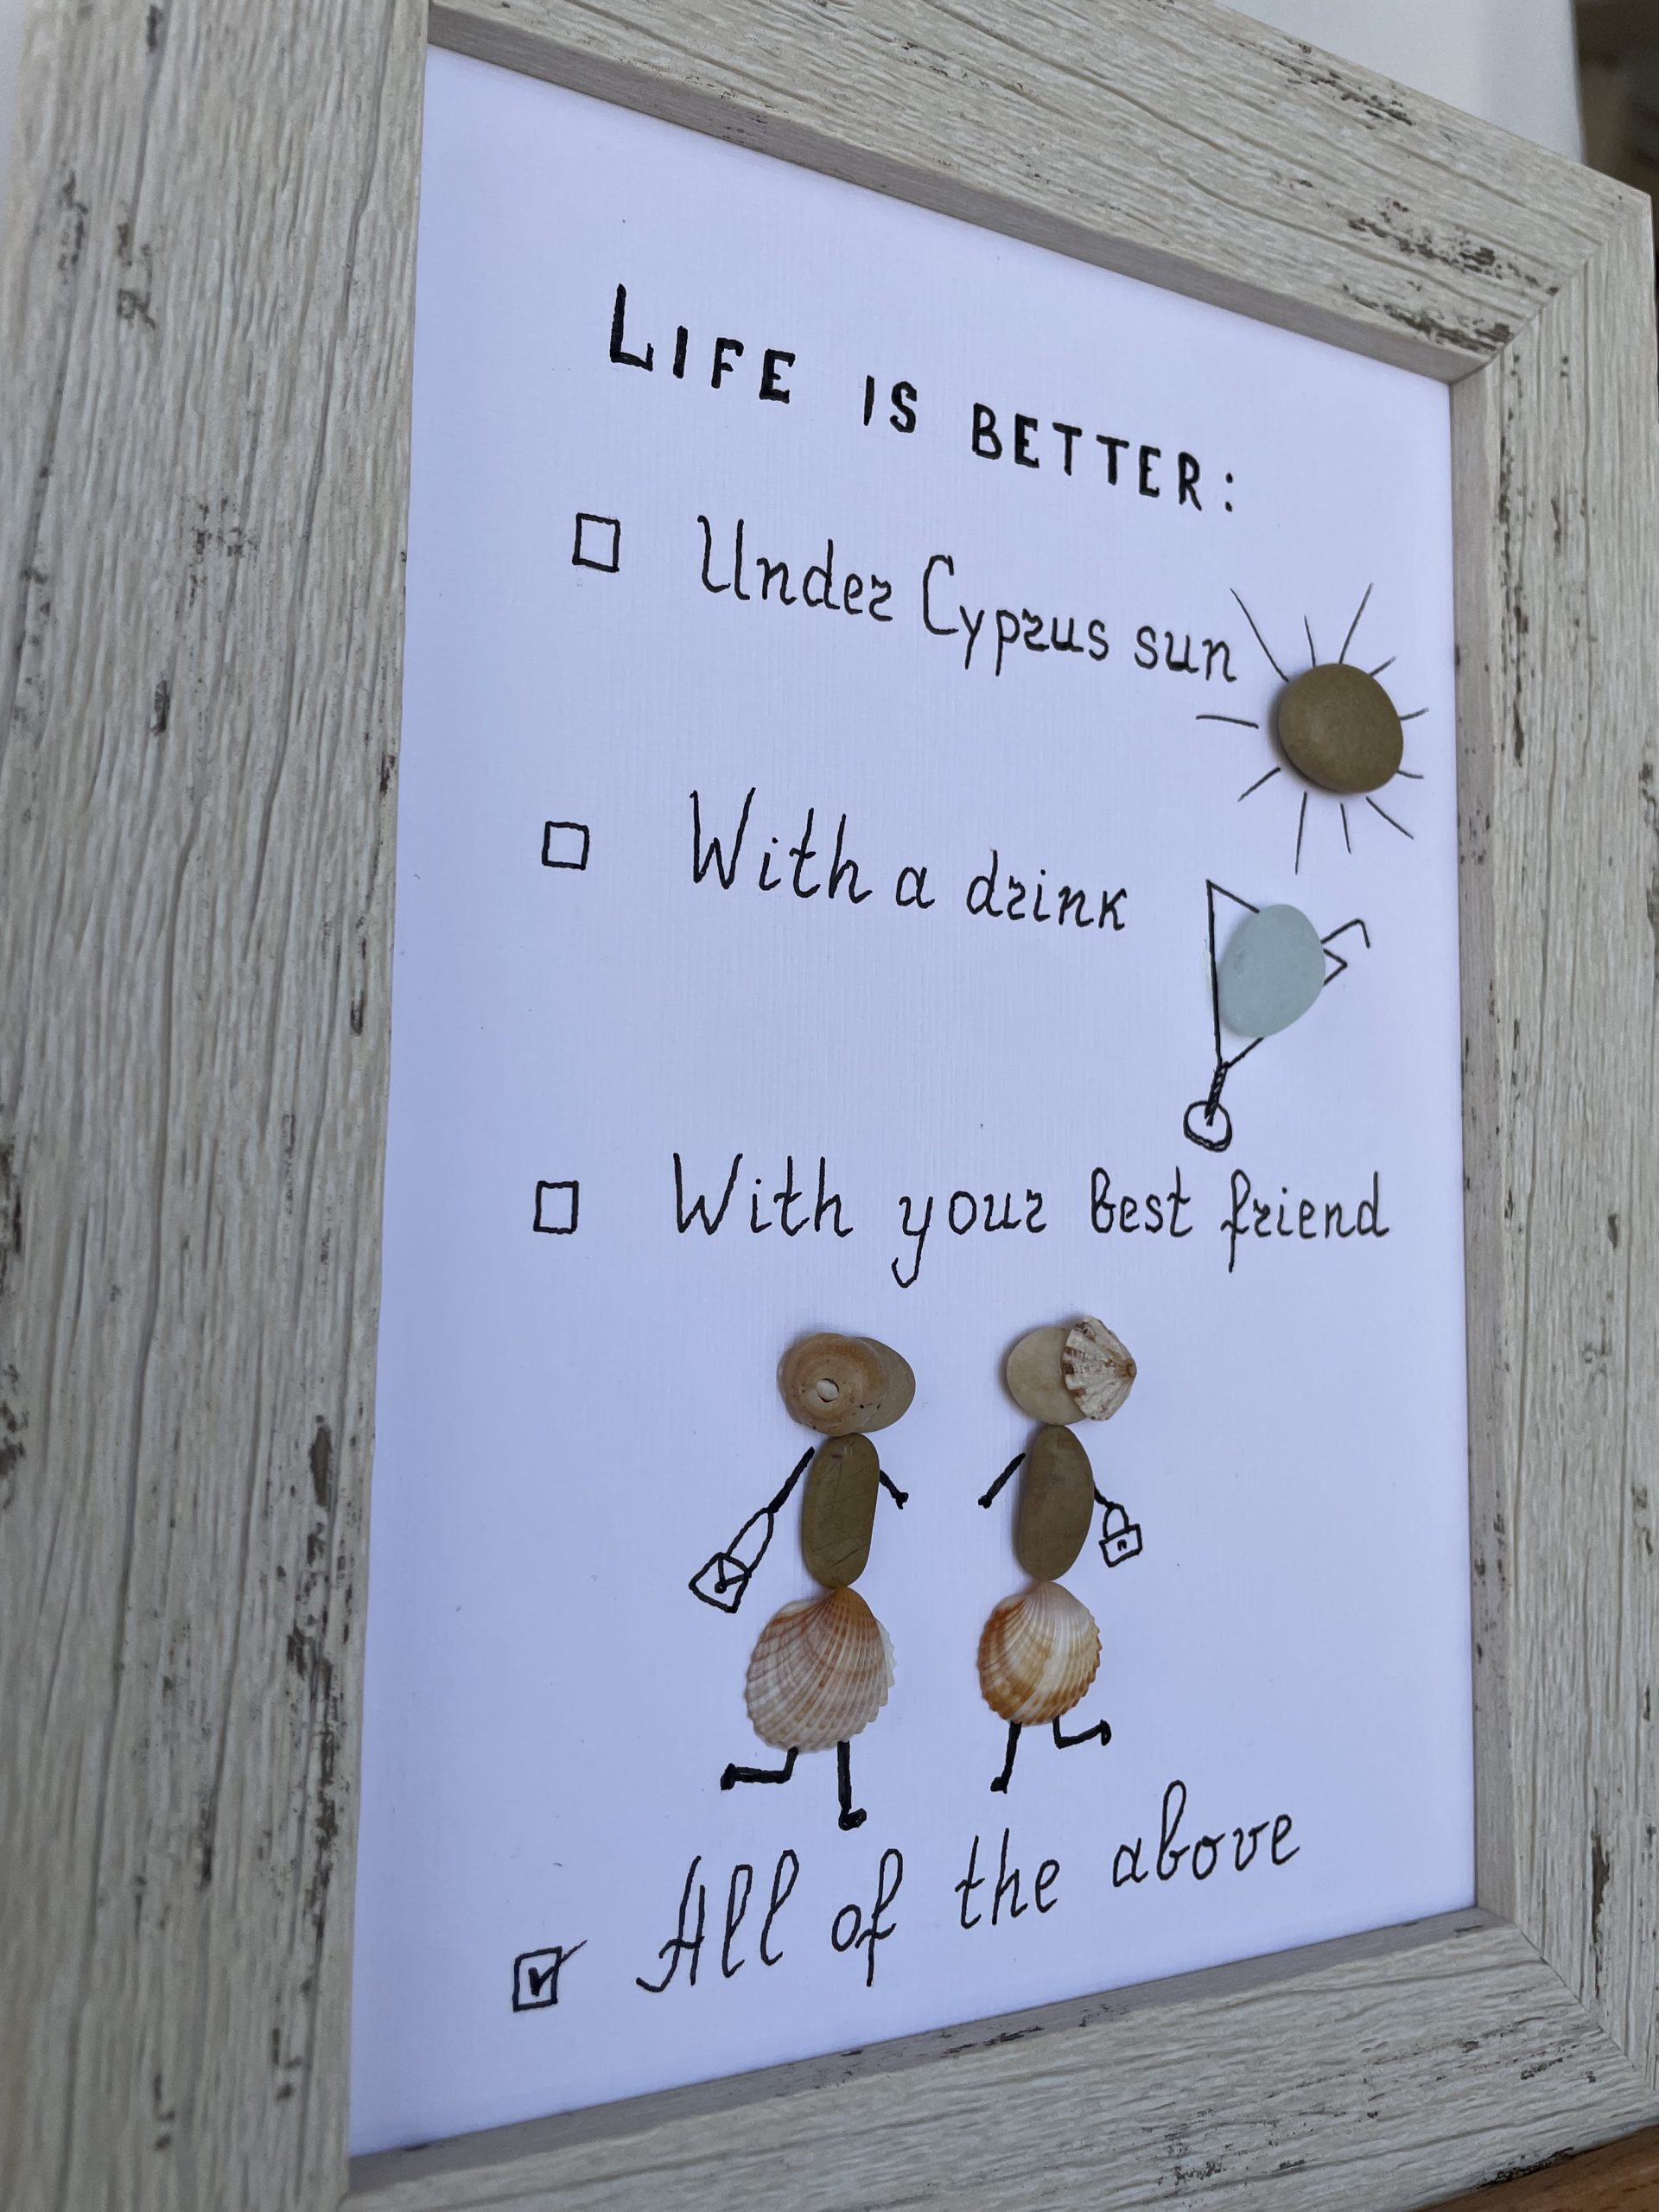 LIFE IS BETTER:
Under Cyprus sun
With a drink
With your best friend
All of the above